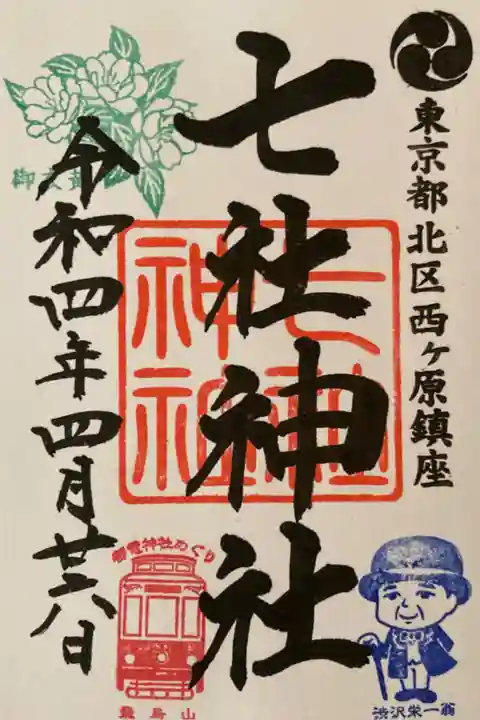 東京都北区西ヶ原鎮座
七社神社
七社神社
御衣黄
令和四年四月廿八日
都電神社めぐり
飛鳥山
渋沢栄一翁